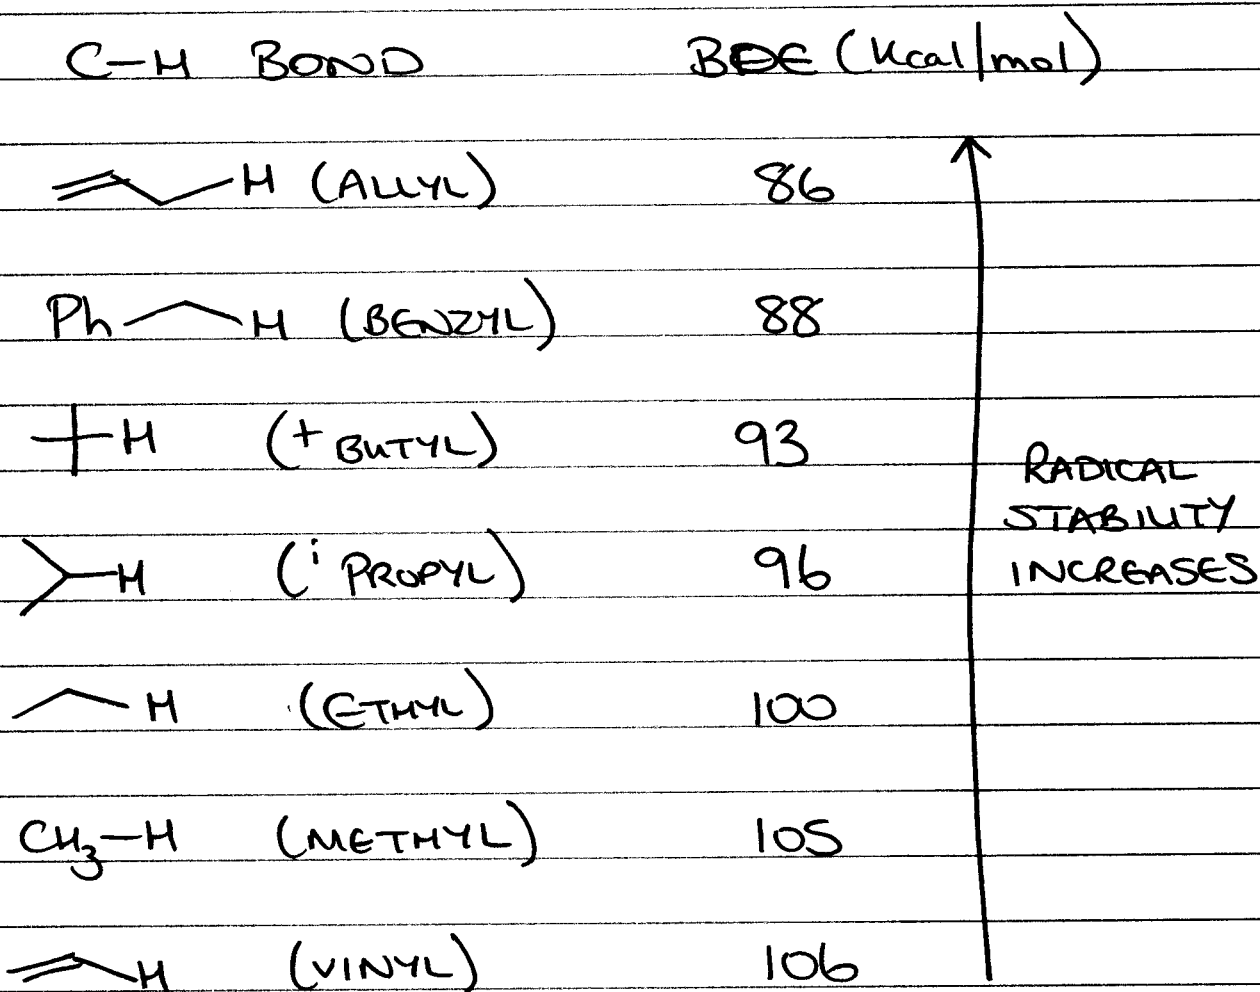 C-H BOND BDE (Kcal/mol)
H (ALLYL) 86
Ph H (BENZYL) 88
H (t BUTYL) 93
RADICAL
STABILITY
H (i PROPYL) 96 INCREASES
H (ETHYL) 100
CH3-H (METHYL) 105
H (VINYL) 106